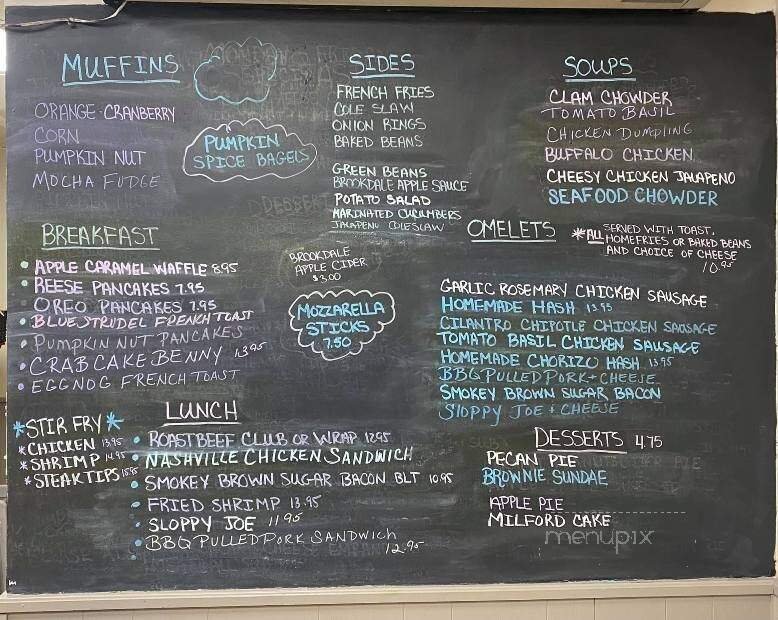 MUFFINS
ORANGE-CRANBERRY
CORN
PUMPKIN NUT
MOCHA FUDGE
PUMPKIN
SPICE BAGELS
SIDES
FRENCH FRIES
COLE SLAW
ONION RINGS
BAKED BEANS
GREEN BEANS
BROOKDALE APPLE SAUCE
POTATO SALAD
MARINATED CUCUMBERS
JALAPENO COLESLAW
SOUPS
CLAM CHOWDER
TOMATO BASIL
CHICKEN DUMPLING
BUFFALO CHICKEN
CHEESY CHICKEN JALAPENO
SEAFOOD CHOWDER
BREAKFAST
• APPLE CARAMEL WAFFLE 8.95
• REESE PANCAKES 7.95
• OREO PANCAKES 7.95
• BLUE STRUDEL FRENCH TOAST
• PUMPKIN NUT PANCAKES
• CRAB CAKE BENNY 13.95
• EGGNOG FRENCH TOAST
BROOKDALE
APPLE CIDER
$3.00
MOZZARELLA
STICKS
7.50
OMELETS
*ALL SERVED WITH TOAST,
HOMEFRIES OR BAKED BEANS
AND CHOICE OF CHEESE
10.95
GARLIC ROSEMARY CHICKEN SAUSAGE
HOMEMADE HASH 13.95
CILANTRO CHIPOTLE CHICKEN SAUSAGE
TOMATO BASIL CHICKEN SAUSAGE
HOMEMADE CHORIZO HASH 13.95
BBQ PULLED PORK + CHEESE
SMOKEY BROWN SUGAR BACON
SLOPPY JOE + CHEESE
*STIR FRY*
* CHICKEN 13.95
* SHRIMP 14.95
* STEAK TIPS 15.95
LUNCH
• ROAST BEEF CLUB OR WRAP 12.95
• NASHVILLE CHICKEN SANDWICH
• SMOKEY BROWN SUGAR BACON BLT 10.95
• FRIED SHRIMP 13.95
• SLOPPY JOE 11.95
• BBQ PULLED PORK SANDWICH
12.95
DESSERTS 4.75
PECAN PIE
BROWNIE SUNDAE
APPLE PIE
MILFORD CAKE
menupix